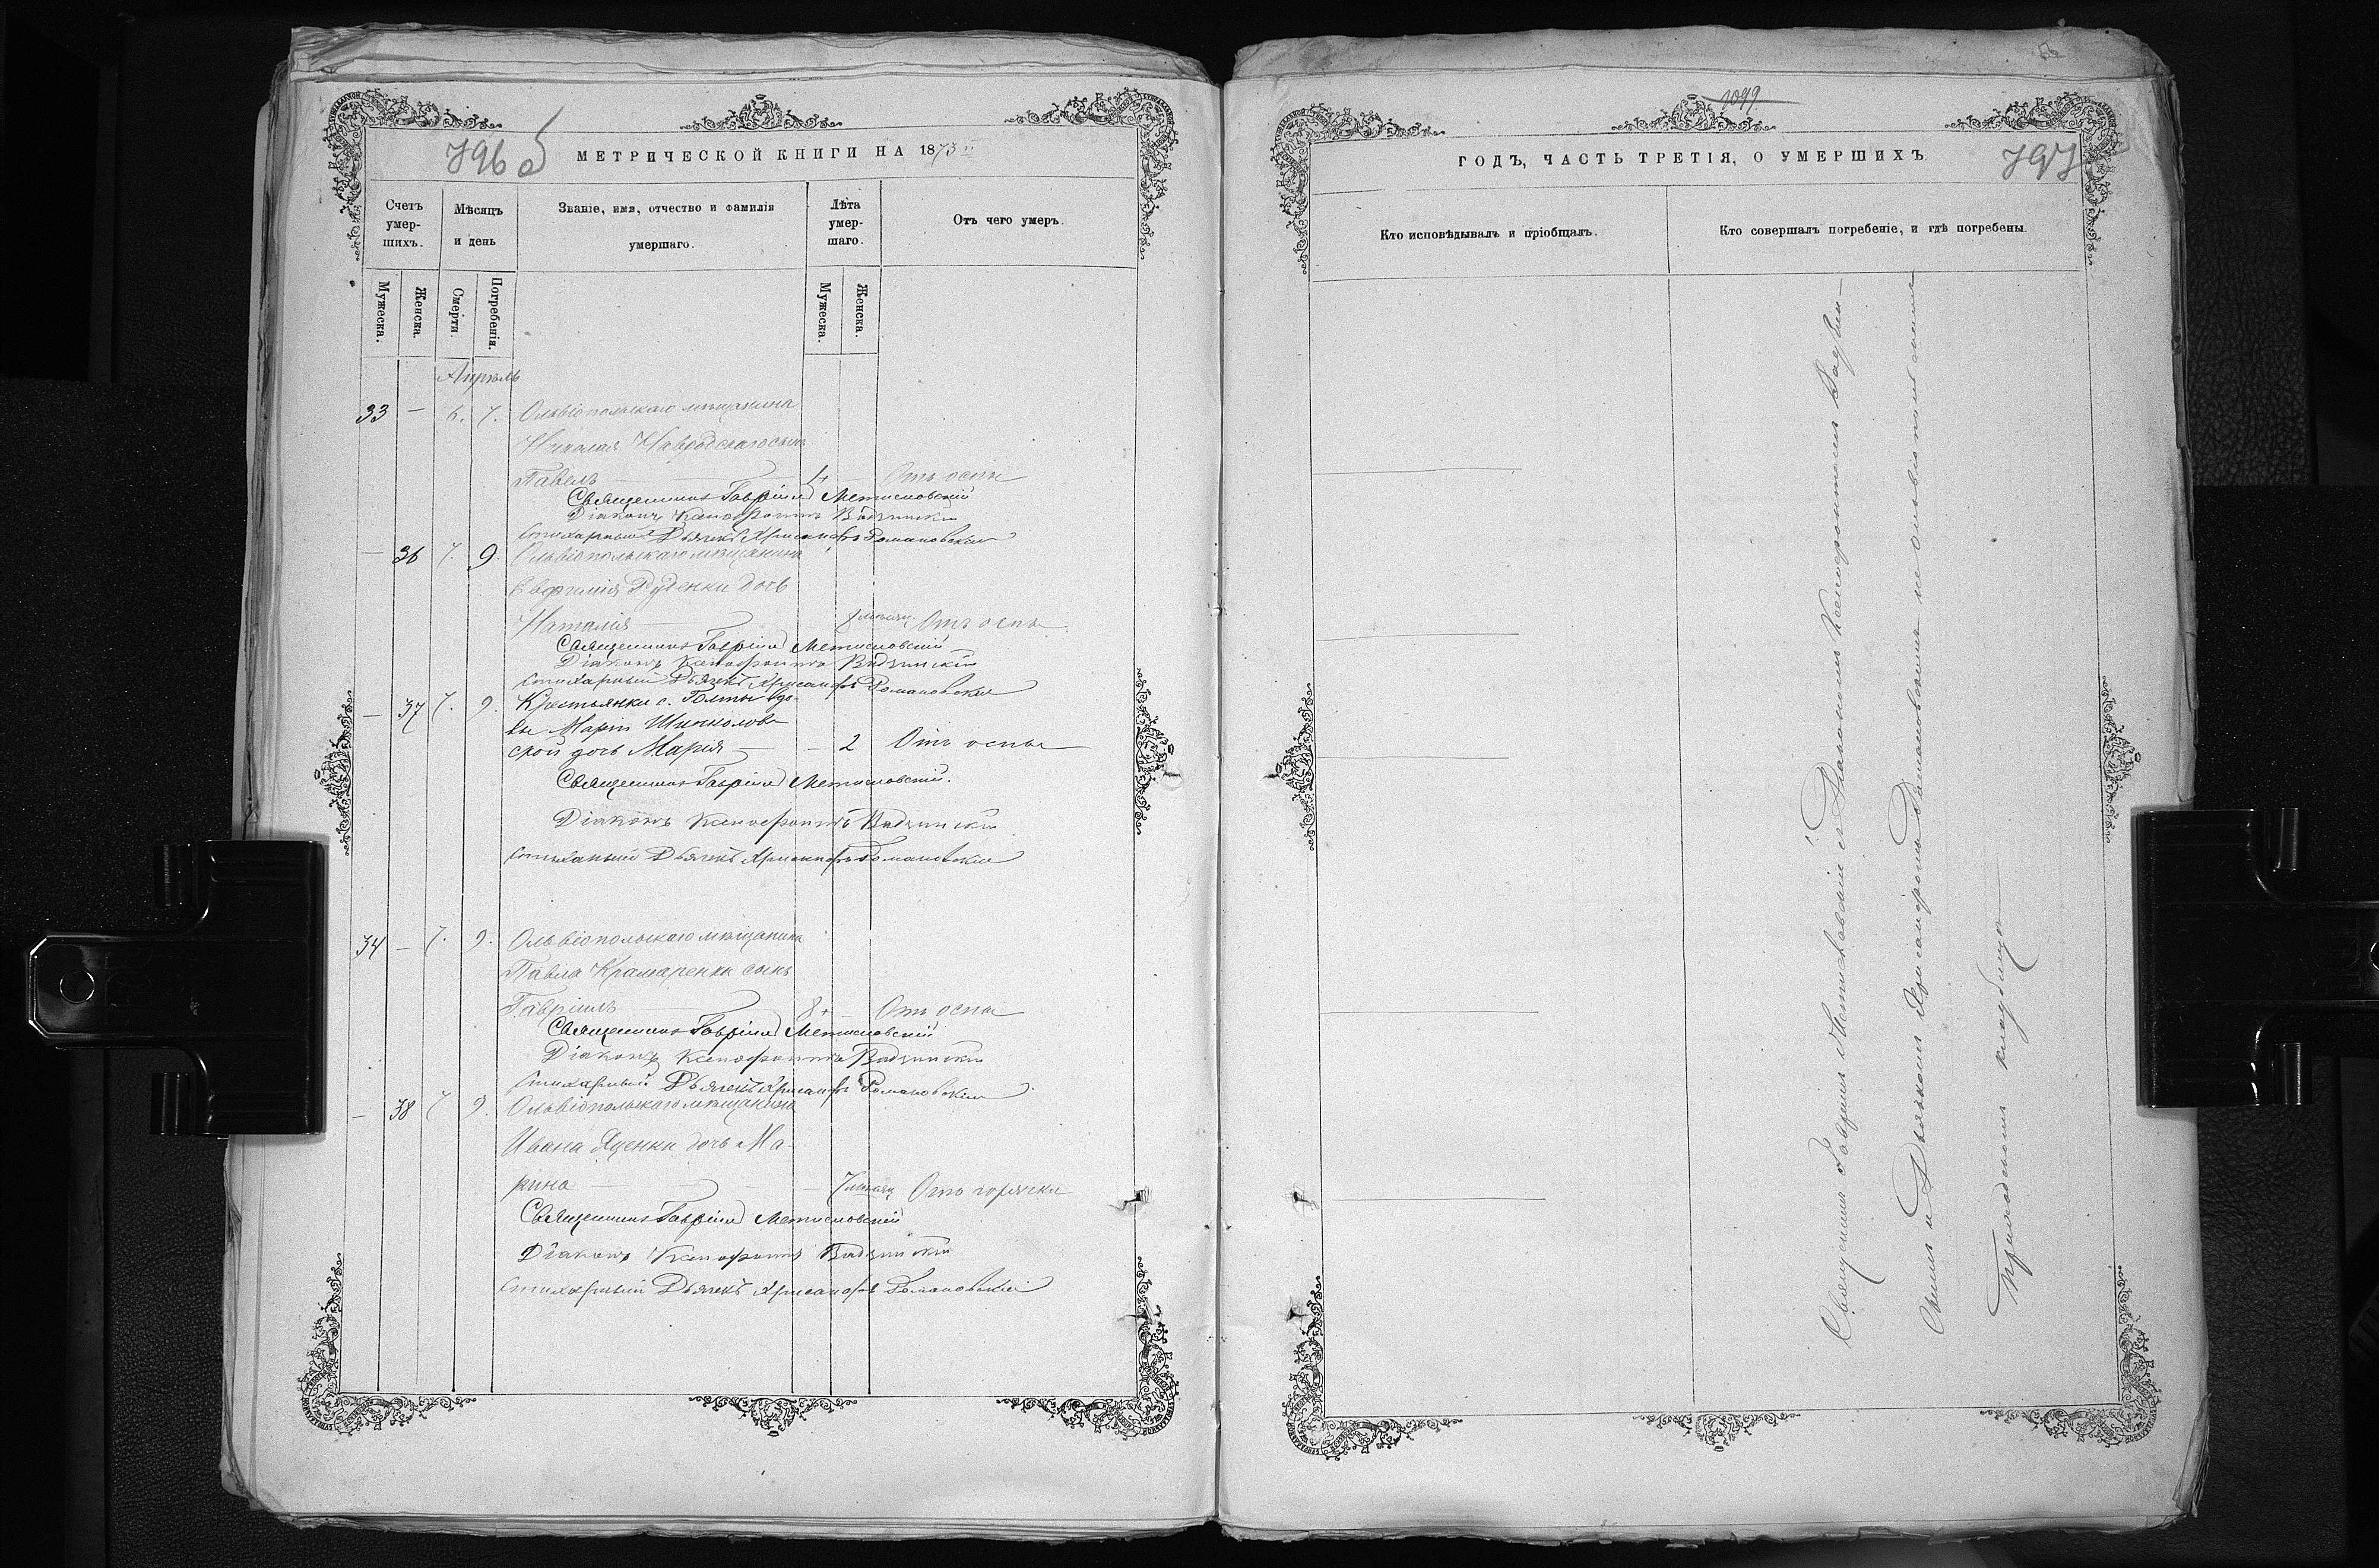 796 об
МЕТРИЧЕСКОЙ КНИГИ НА 1873
Счетъ умер-шихъ.
Мѣсяцъ и день
Званіе, имя, отчество и фамилія умершаго.
Лѣта умер-шаго.
Отъ чего умеръ.
Мужеска.
Женска.
Смерти.
Погребенія.
Мужеска.
Женска.
Апрѣль
33 — 6. 7. Ольвіопольскаго мѣщанина
Николая Навродскаго сынъ
Павелъ — 4 — Отъ оспы
Священникъ Гавріилъ Метисловскій
Діаконъ Ксенофонтъ
Стихарный Дьячекъ Хрисанфъ Романовскій
— 36 7. 9. Ольвіопольскаго мѣщанина
Евфимія Руденки дочь
Наталія — Отъ оспы
Священникъ Гавріилъ Метисловскій
Діаконъ Ксенофонтъ
Стихарный Дьячекъ Хрисанфъ Романовскій
— 37 7. 9. Крестьянки с. Голты вдо-
вы Маріи
ской дочь Марія — — 2 Отъ оспы
Священникъ Гавріилъ Метисловскій.
Діаконъ Ксенофонтъ
Стихарный Дьячекъ Хрисанфъ Романовскій
34 — 7. 9. Ольвіопольскаго мѣщанина
Павла Крамаренки сынъ
Гавріилъ — Отъ оспы
Священникъ Гавріилъ Метисловскій
Діаконъ Ксенофонтъ
Стихарный Дьячекъ Хрисанфъ Романовскій
— 38 7 9. Ольвіопольскаго мѣщанина
Ивана Яценки дочь Ма-
рина — — 7 мѣсяц Отъ горячки
Священникъ Гавріилъ Метисловскій
Діаконъ Ксенофонтъ
Стихарный Дьячекъ Хрисанфъ Романовскій
1049
797
ГОДЪ, ЧАСТЬ ТРЕТІЯ, О УМЕРШИХЪ
Кто исповѣдывалъ и пріобщалъ.
Кто совершалъ погребеніе, и гдѣ погребены.
Священникъ Гавріилъ Метисловскій съ Діакономъ Ксенофонтомъ
и Дьячкомъ Хрисанфомъ Романовскимъ на ольвіопольскомъ
Приходскомъ кладбищѣ